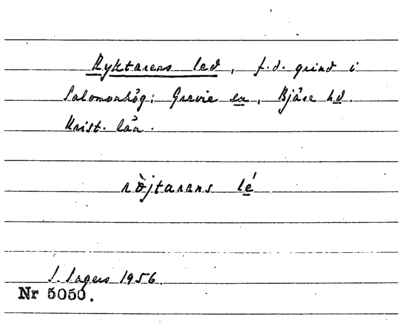 Ryktarens led, f.d. grind i
Salomonhög; Grevie sn, Bjäre hd.
Krist. län.
ròjtarens lé
I. Ingers 1956.
Nr 5050.